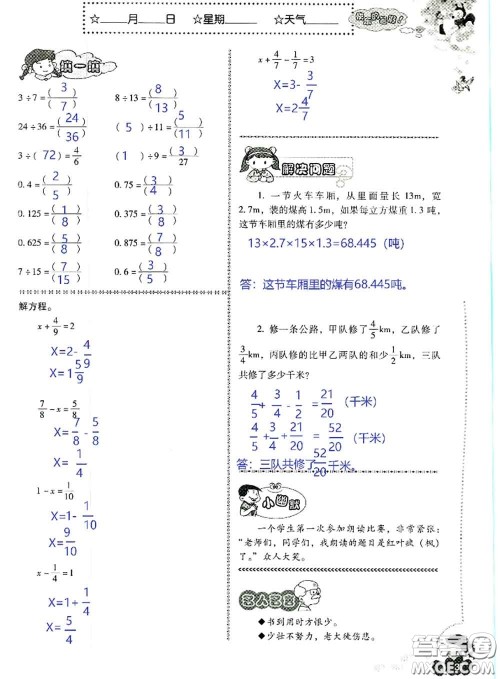 ☆____月____日 ☆星期____ ☆天气____
填一填
3÷7=(3)/(7) 8÷13=(8)/(13)
24÷36=(24)/(36) (5)÷11=(5)/(11)
3÷(72)=4/6 (1)÷9=(3)/27
0.4=(2)/(5) 0.75=(3)/(4)
0.125=(1)/(8) 0.375=(3)/(8)
0.625=(5)/(8) 0.875=(7)/(8)
7÷15=(7)/(15) 0.6=(3)/(5)
解方程。
x+4/9=2
X=2-4/9
X=1 5/9
7/8-x=5/8
X=7/8-5/8
X=1/4
1-x=1/10
X=1-1/10
X=9/10
x-1/4=1
X=1+1/4
X=5/4
x+4/7-1/7=3
X=3-3/7
X=2 4/7
解决问题
1. 一节火车车厢，从里面量长 13m，宽
2.7m，装的煤高 1.5m，如果每立方煤重 1.3 吨，
这节车厢里的煤有多少吨？
13×2.7×15×1.3=68.445（吨）
答：这节车厢里的煤有68.445吨。
2. 修一条公路，甲队修了4/5km，乙队修了
3/4km，丙队修的比甲乙两队的和少1/2km，三队
共修了多少千米？
4/5+3/4-1/2=21/20（千米）
4/5+3/4+21/20=52/20（千米）
答：三队共修了52/20千米。
小幽默
一个学生第一次参加朗读比赛，非常紧张：
“老师们，同学们，我朗读的题目是红叶疯（枫）
了。”众人大笑。
名人名言
◆书到用时方恨少。
◆少壮不努力，老大徒伤悲。
答案圈
MXQE.COM